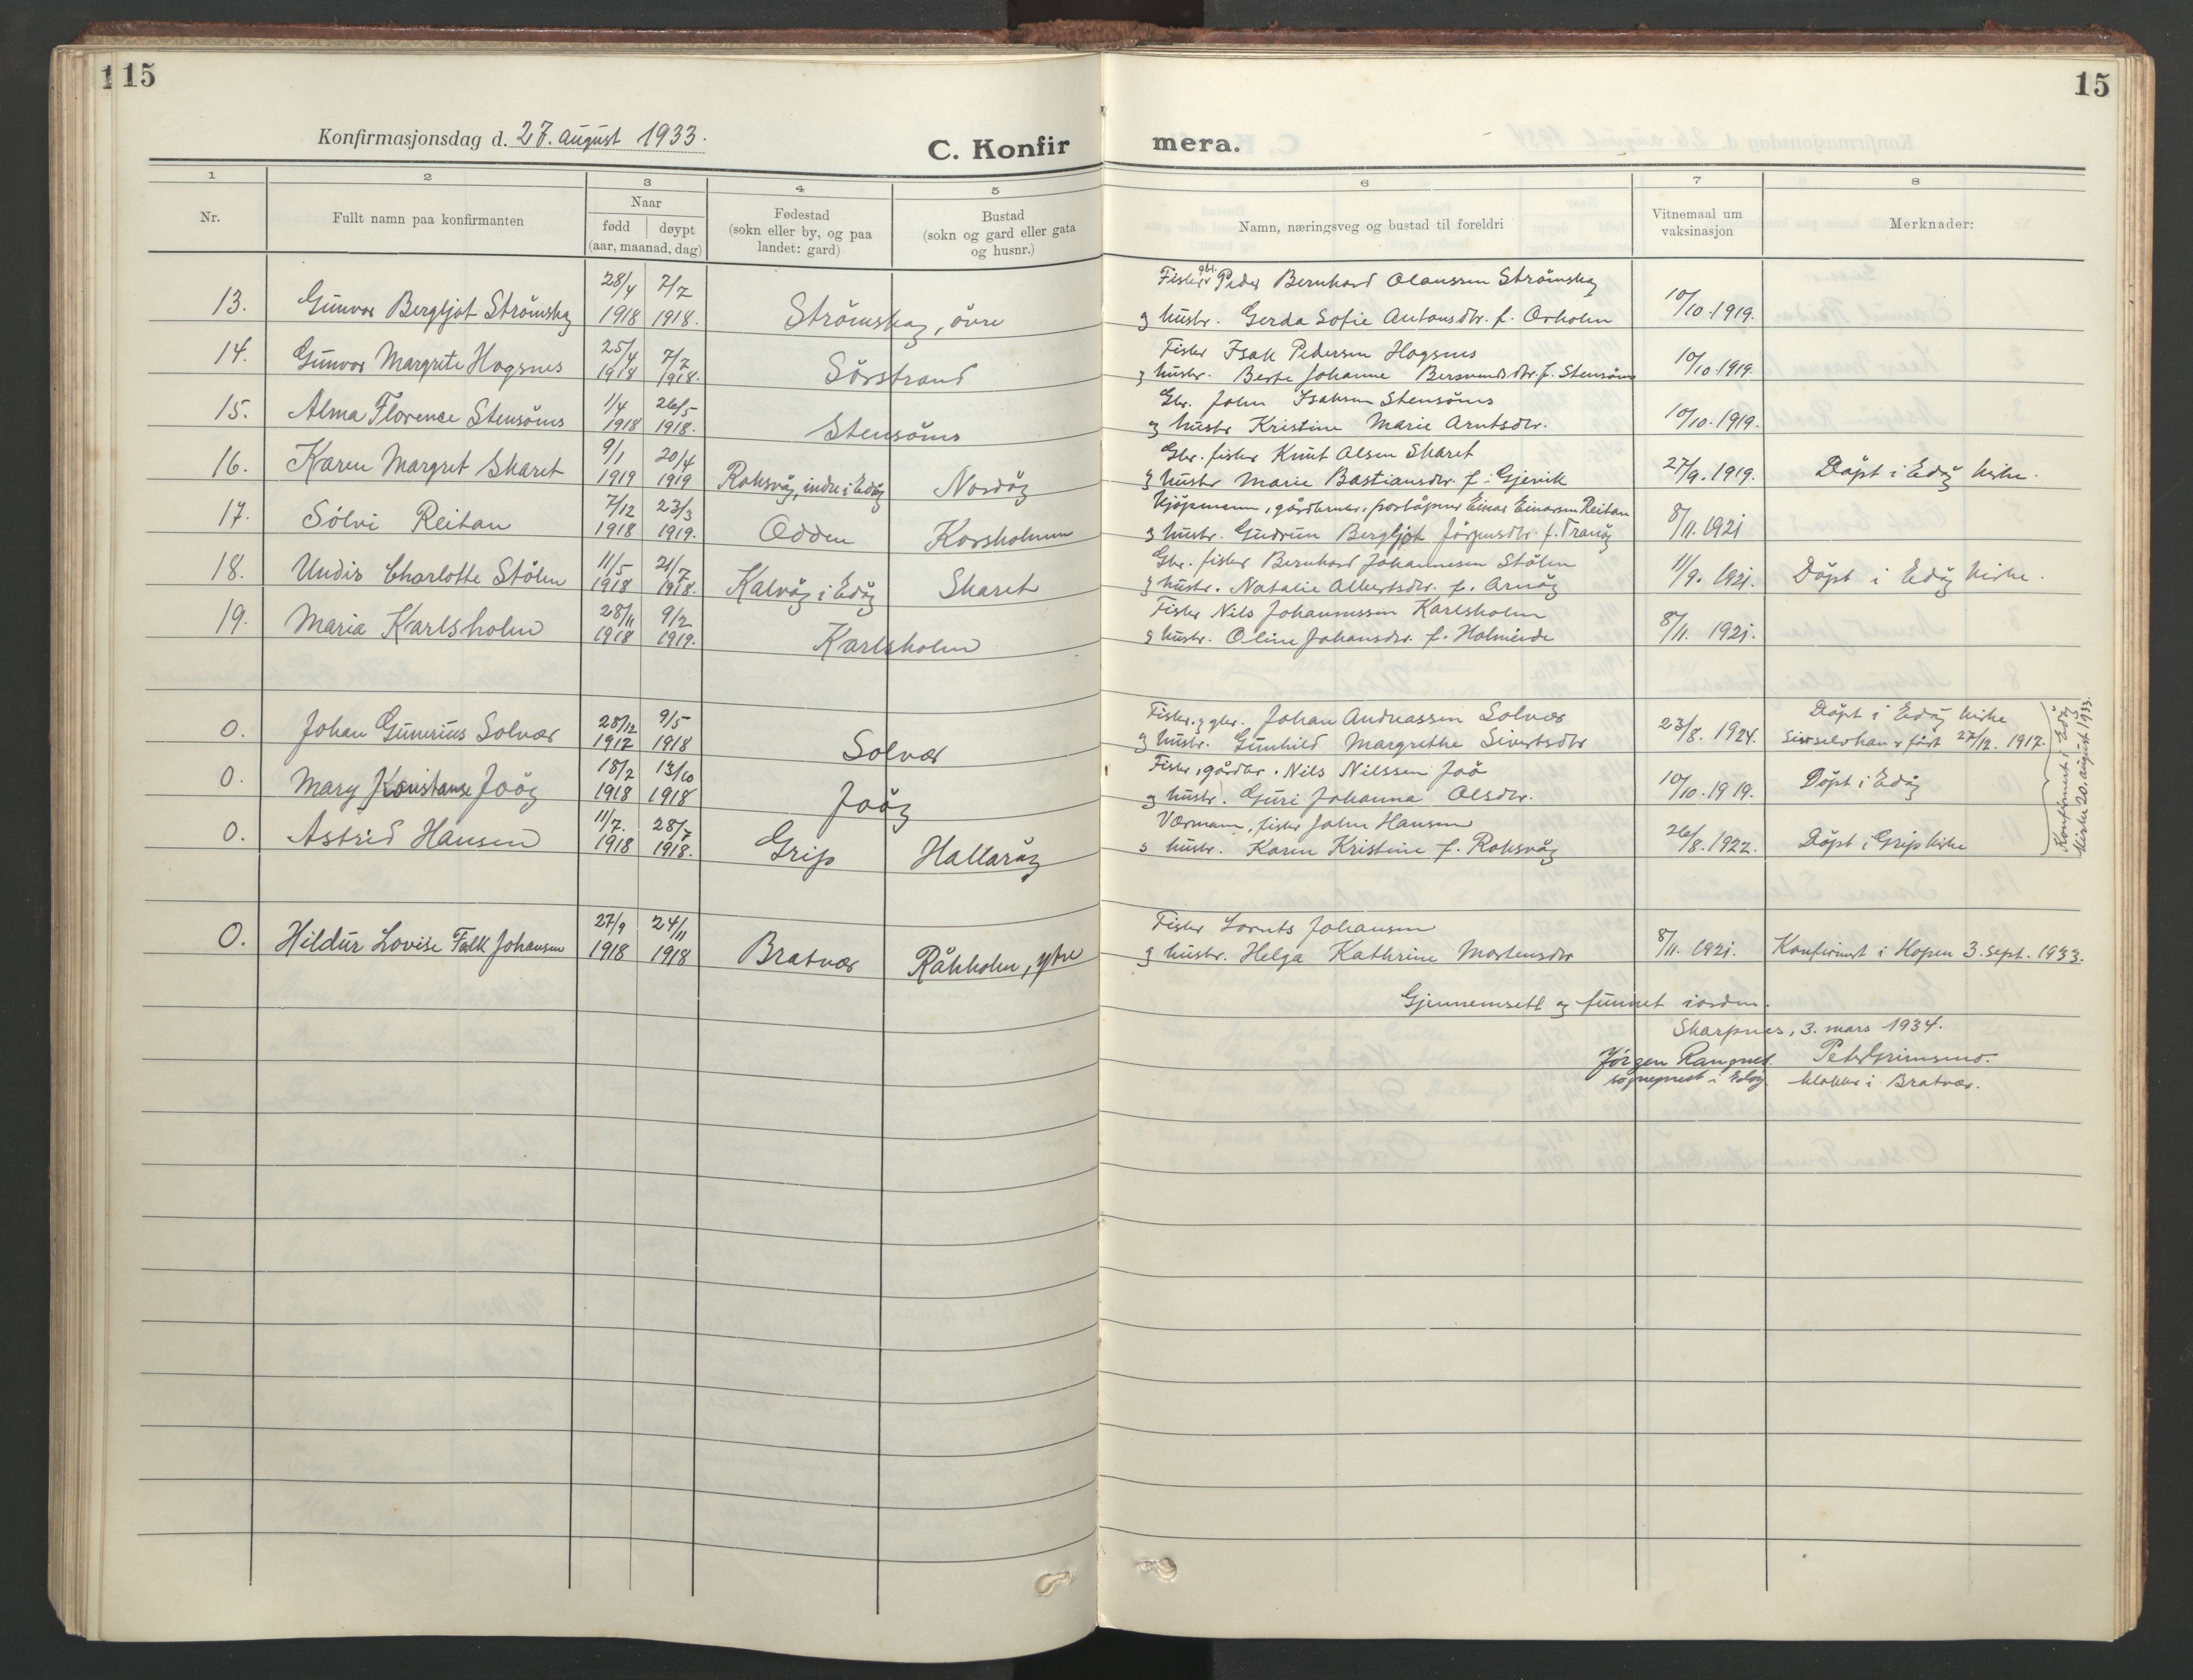 115
15
Konfirmasjonsdag d. 27. august 1933.
C. Konfir
mera.
1 2 3 4 5 6 7 8
Nr.
Fullt namn paa konfirmanten
Naar
fødd døypt
(aar, maanad, dag)
Fødestad
(sokn eller by, og paa
landet: gard)
Bustad
(sokn og gard eller gata
og husnr.)
Namn, næringsveg og bustad til foreldri
Vitnemaal um
vaksinasjon
Merknader:
28/4 7/7 Fisker gbr. Peder Bernhard Olaussen Strömskag
13. Gunvor Bergljot Strömskag 1918 1918. Strömskag, övre og hustr. Gerda Sofie Antonsdtr. f. Orholm 10/10.1919.
25/4 7/7 Fisker Isak Pedersen Hogsnes
14. Gunvor Margrete Hogsnes 1918 1918. Sörstrand og hustr. Berte Johanne f. Stensöens 10/10.1919.
1/4 26/5 Gbr. John Isaksen Stensöens
15. Alma Florence Stensöens 1918 1918. Stensöens og hustr Kristine Marie Arntsdtr. 10/10.1919.
9/1 20/4 Gbr. fisker Knut Olsen Skaret
16. Karen Margret Skaret 1919 1919 Roksvåg, indre i Edøy Nordöy og hustr Marie Bastiansdtr. f. Gjevik 27/9.1919. Döpt i Edöy kirke.
7/12 23/3 Kjöpmann, gårdbruker, poståpner Einar Einarsen Reitan
17. Sölvi Reitan 1918 1919. Odden Korsholmen og hustr. Gudrun Bergljot Jörgensdtr. f. Tranöy 8/11.1921
11/5 21/7 Gbr. fisker Bernhard Johannesen Stölen
18. Undis Charlotte Stölen 1918 1918. Kalvåg i Edöy Skaret og hustr. Natalie Albertsdtr. f. Arnöy 11/9.1921. Döpt i Edöy kirke.
28/11 9/2 Fisker Nils Johannessen Karlsholm
19. Maria Karlsholm 1918 1919. Karlsholm og hustr. Oline Johansdtr. f. 8/11.1921.
28/12 9/5 Fisker og gbr. Johan Andreassen Solvær Döpt i Edöy kirke
0. Johan Gunerius Solvær 1917 1918 Solvær og hustr. Gunhild Margrethe Sivertsdtr 23/8.1924. Sier selv han er födt 27/12.1917.
18/2 13/10 Fisker, gårdbr. Nils Nilssen Joö
0. Mary Konstanse Joöy 1918 1918 Joöy og hustr. Guri Johanna Olsdtr. 10/10.1919. Döpt i Edöy
11/7. 28/7 Værmann, fisker John Hansen
0. Astrid Hansen 1918 1918. Grip Hallaröy og hustr. Karen Kristine f. Roksvåg 26/8.1922. Döpt i Grip kirke
Konfirmert i Edöy
kirke 20. august 1933.
27/9 24/11 Fisker Lornts Johansen
0. Hildur Lovise Falk Johansen 1918 1918 Bratvær Råkholm, ytre og hustr. Helga Kathrine Mortensdtr 8/11.1921. Konfirmert i Hopen 3. sept. 1933.
Gjennemsett og funnet iorden.
Skarpnes, 3. mars 1934.
Jörgen Rangnes. Peter Grimsmo.
sogneprest i Edöy klokker i Bratvær.